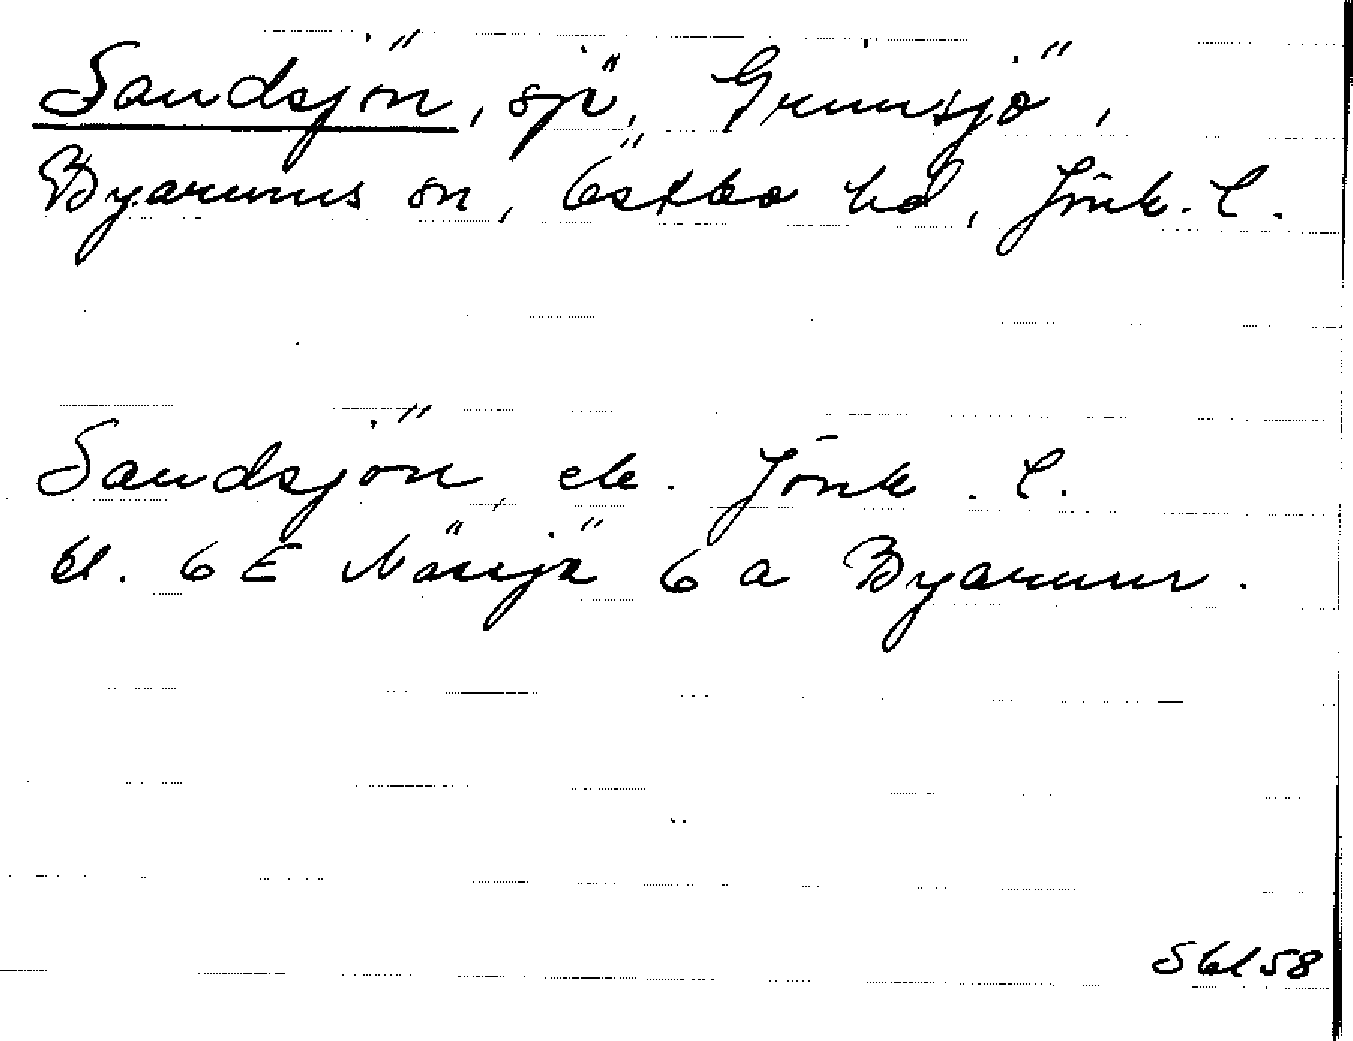 Sandsjön, sjö, Grimsjö,
Byarums sn, Östbo hd, Jönk. l.
Sandsjön, ek. Jönk. l.
bl. 6 E Nässjö 6 a Byarum.
Sbl 58